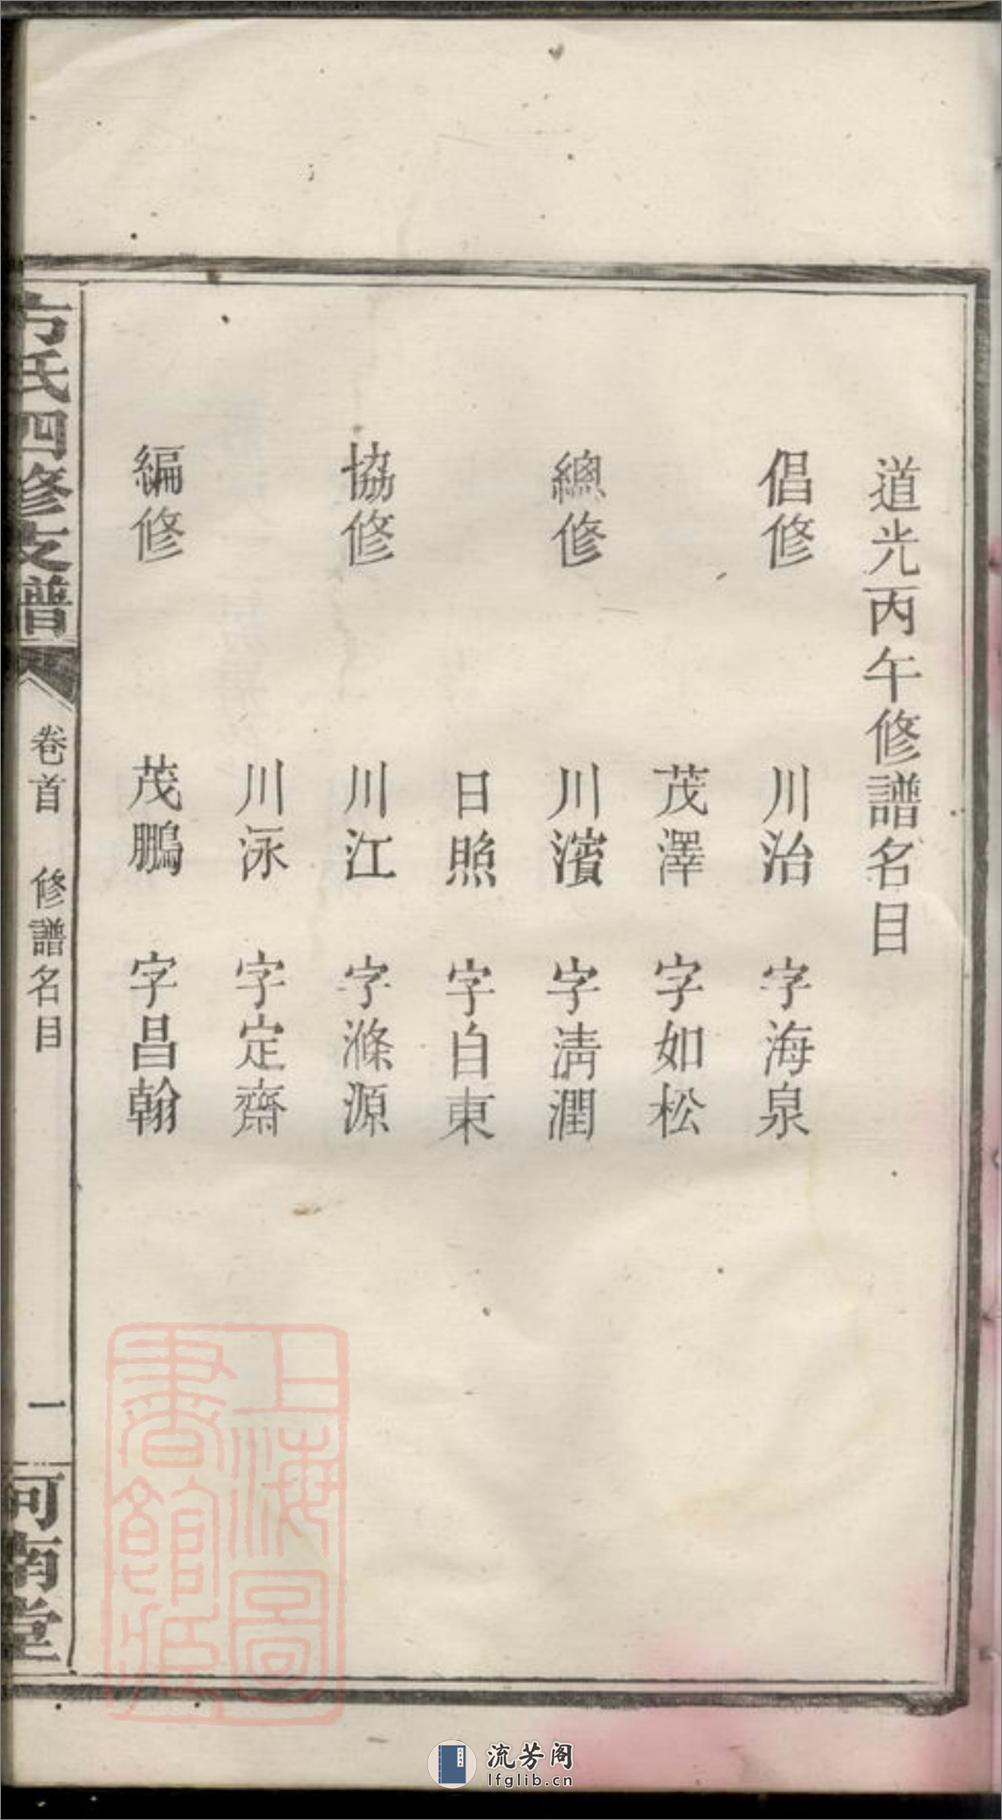 道光丙午修譜名目
倡修 川治 字海泉
茂澤 字如松
總修 川濱 字清潤
日照 字自東
協修 川江 字滌源
川泳 字定齋
編修 茂鵬 字昌翰
方氏四修支譜 卷首 修譜名目 一 河南堂
上海圖書館藏
流芳阁
lfglib.cn